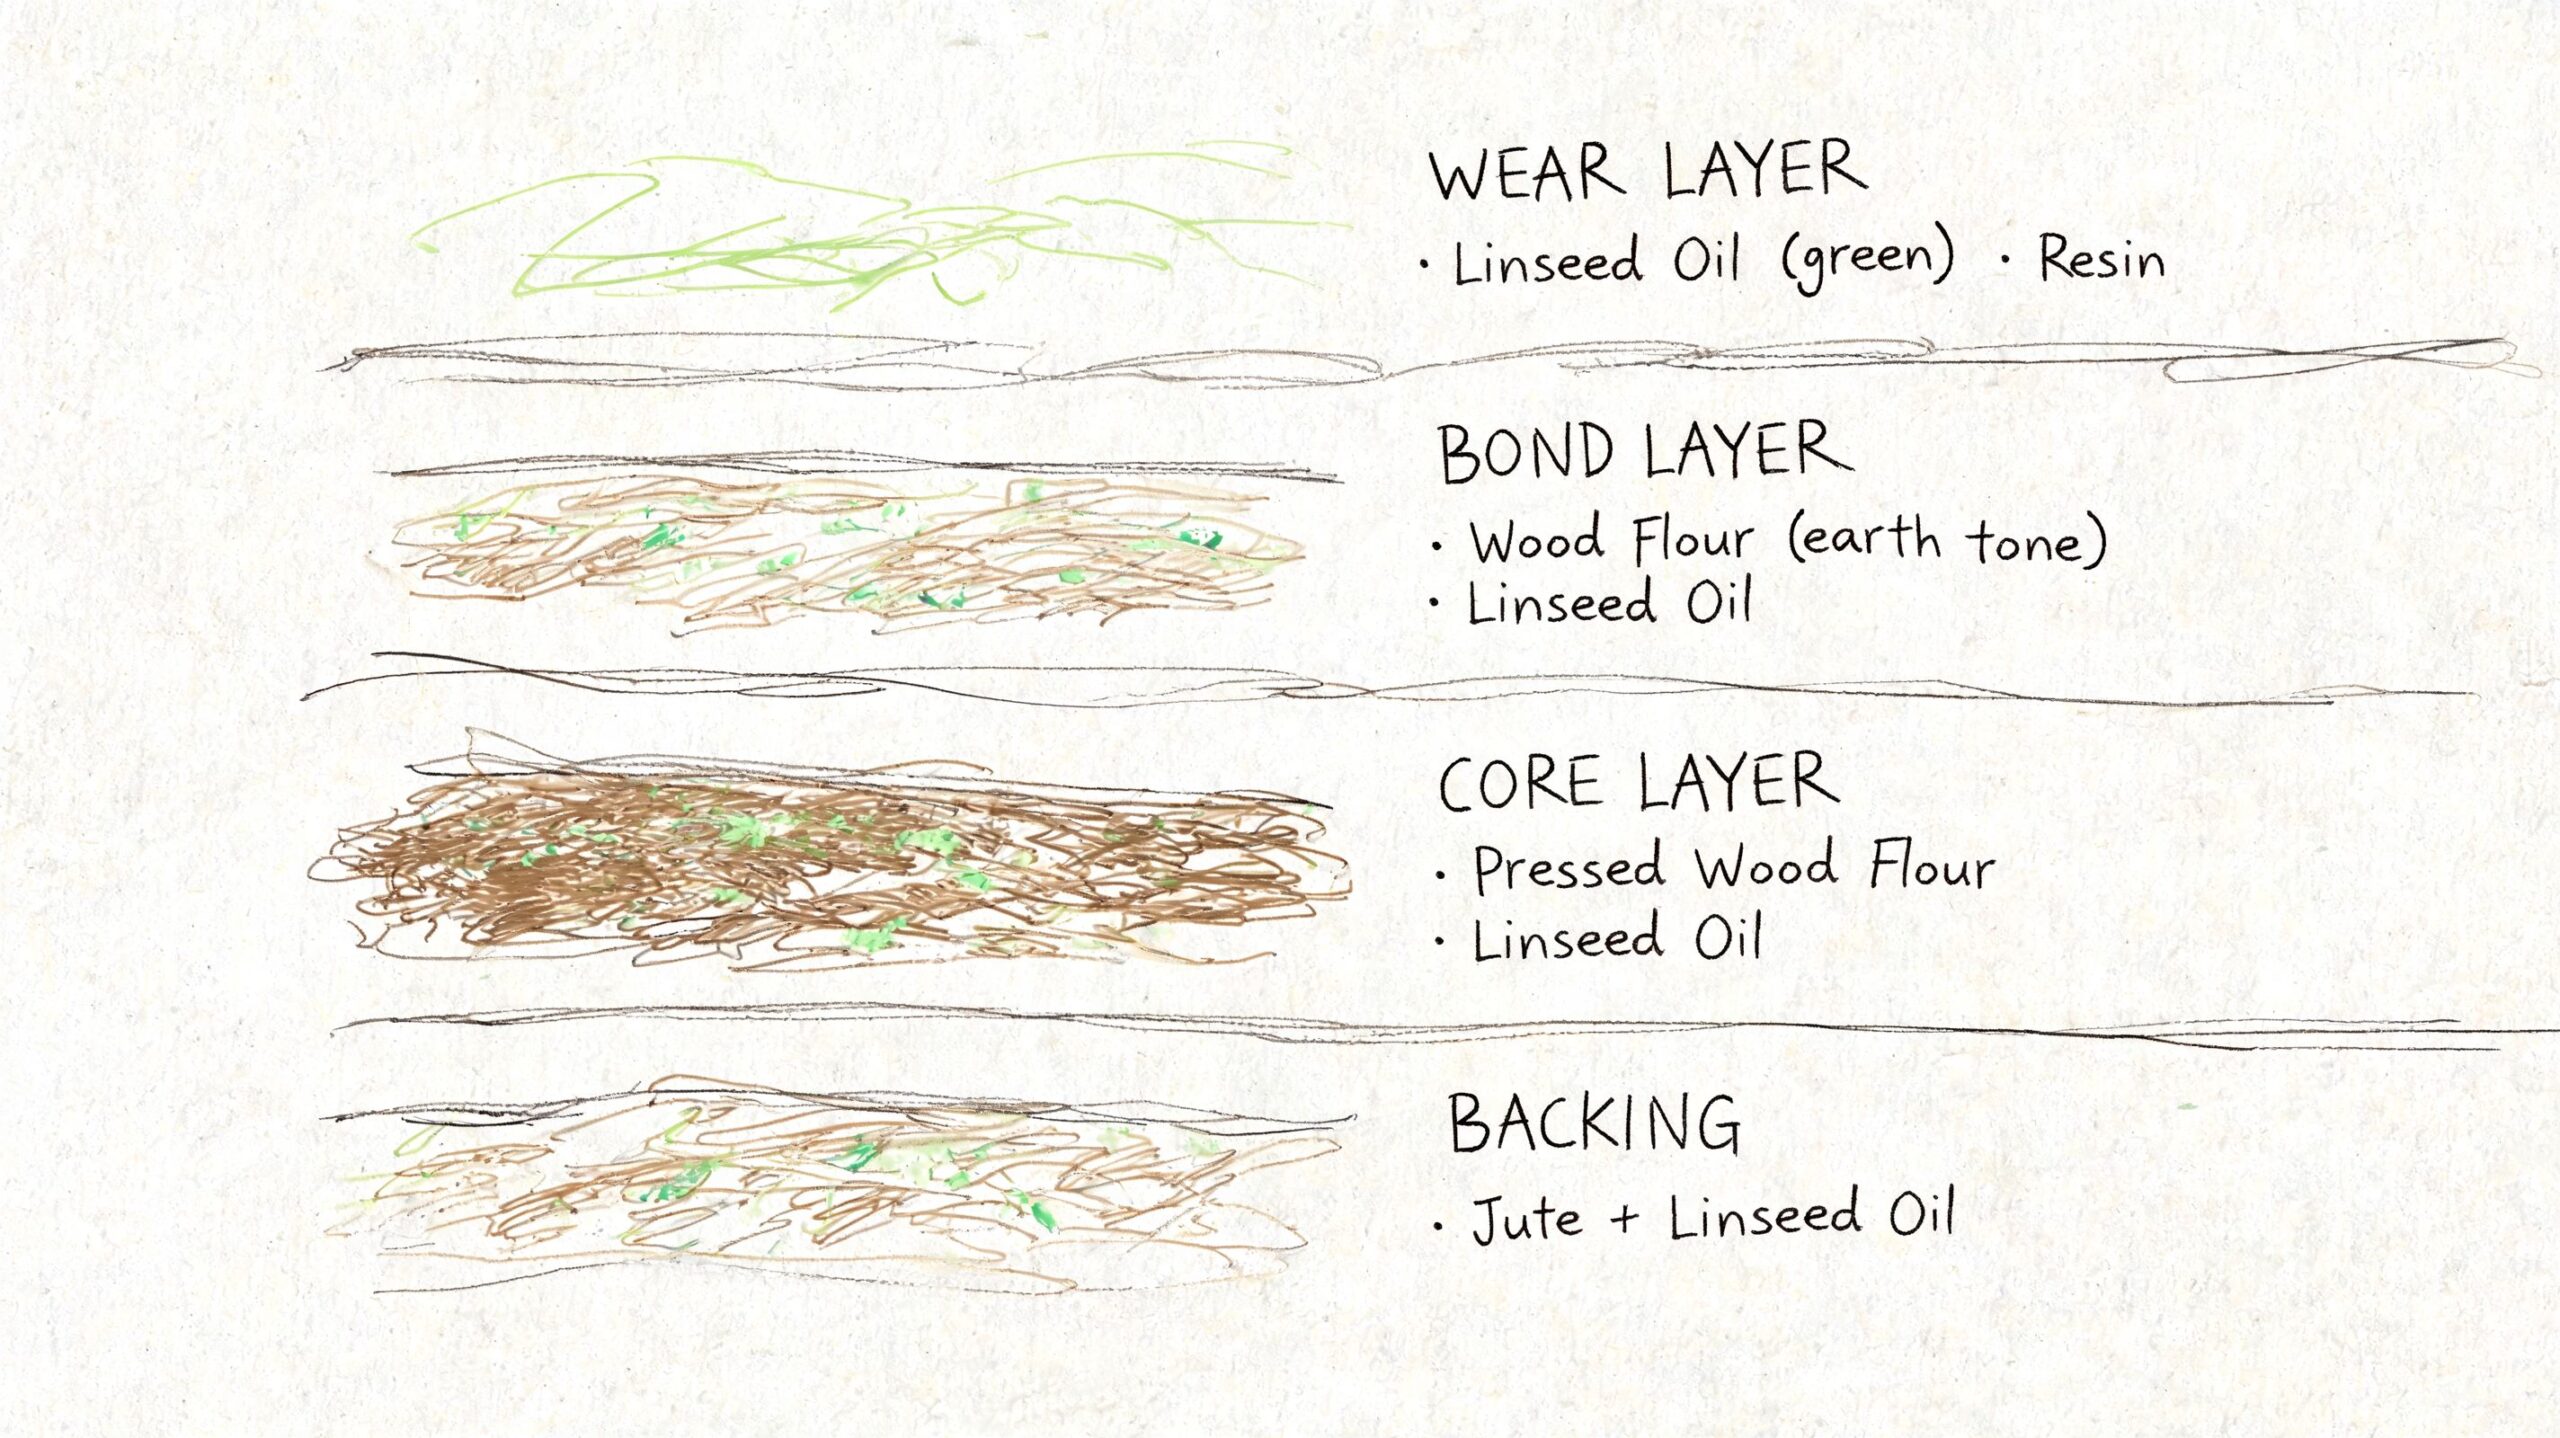 WEAR LAYER
· Linseed Oil (green) · Resin
BOND LAYER
· Wood Flour (earth tone)
· Linseed Oil
CORE LAYER
· Pressed Wood Flour
· Linseed Oil
BACKING
· Jute + Linseed Oil